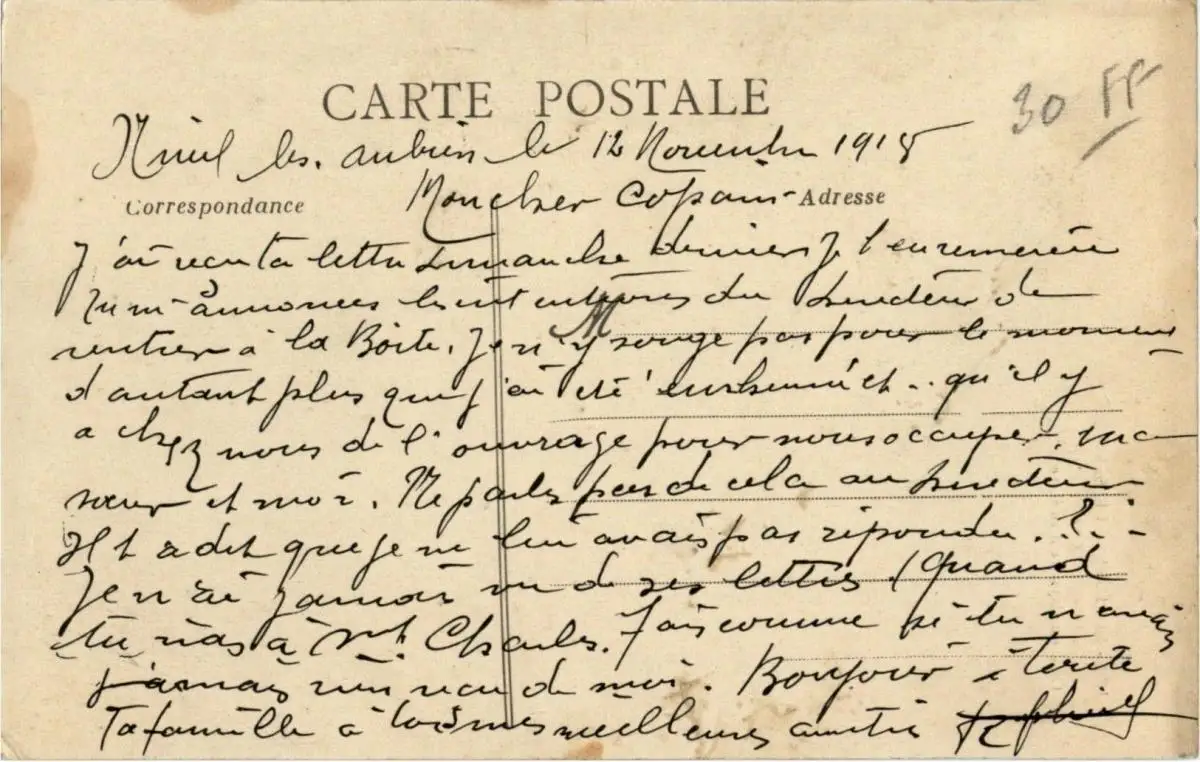 CARTE POSTALE
30 FF
Nueil les. aubiers le 12 Novembre 1918
Correspondance
Mon cher Copain
Adresse
J'ai recu ta lettre dimanche dernier Je t'en remercie
Tu m'annonces les intentions du Directeur de
rentrer à la Boite. Je n'y songe pas pour le moment
d'autant plus que j'ai été et.. qu'il y
a chez nous de l'ouvrage pour nous occuper, ma
sœur et moi. Ne parles pas de cela au Directeur
Il t a dit que je ne lui avais pas répondu. ?..
Je n'ai jamais vu de ses lettres (Quand
tu iras à St. Charles. Fais comme si tu n'avais
jamais rien recu de moi. Bonjour à toute
Ta famille à toi mes meilleures amitiés